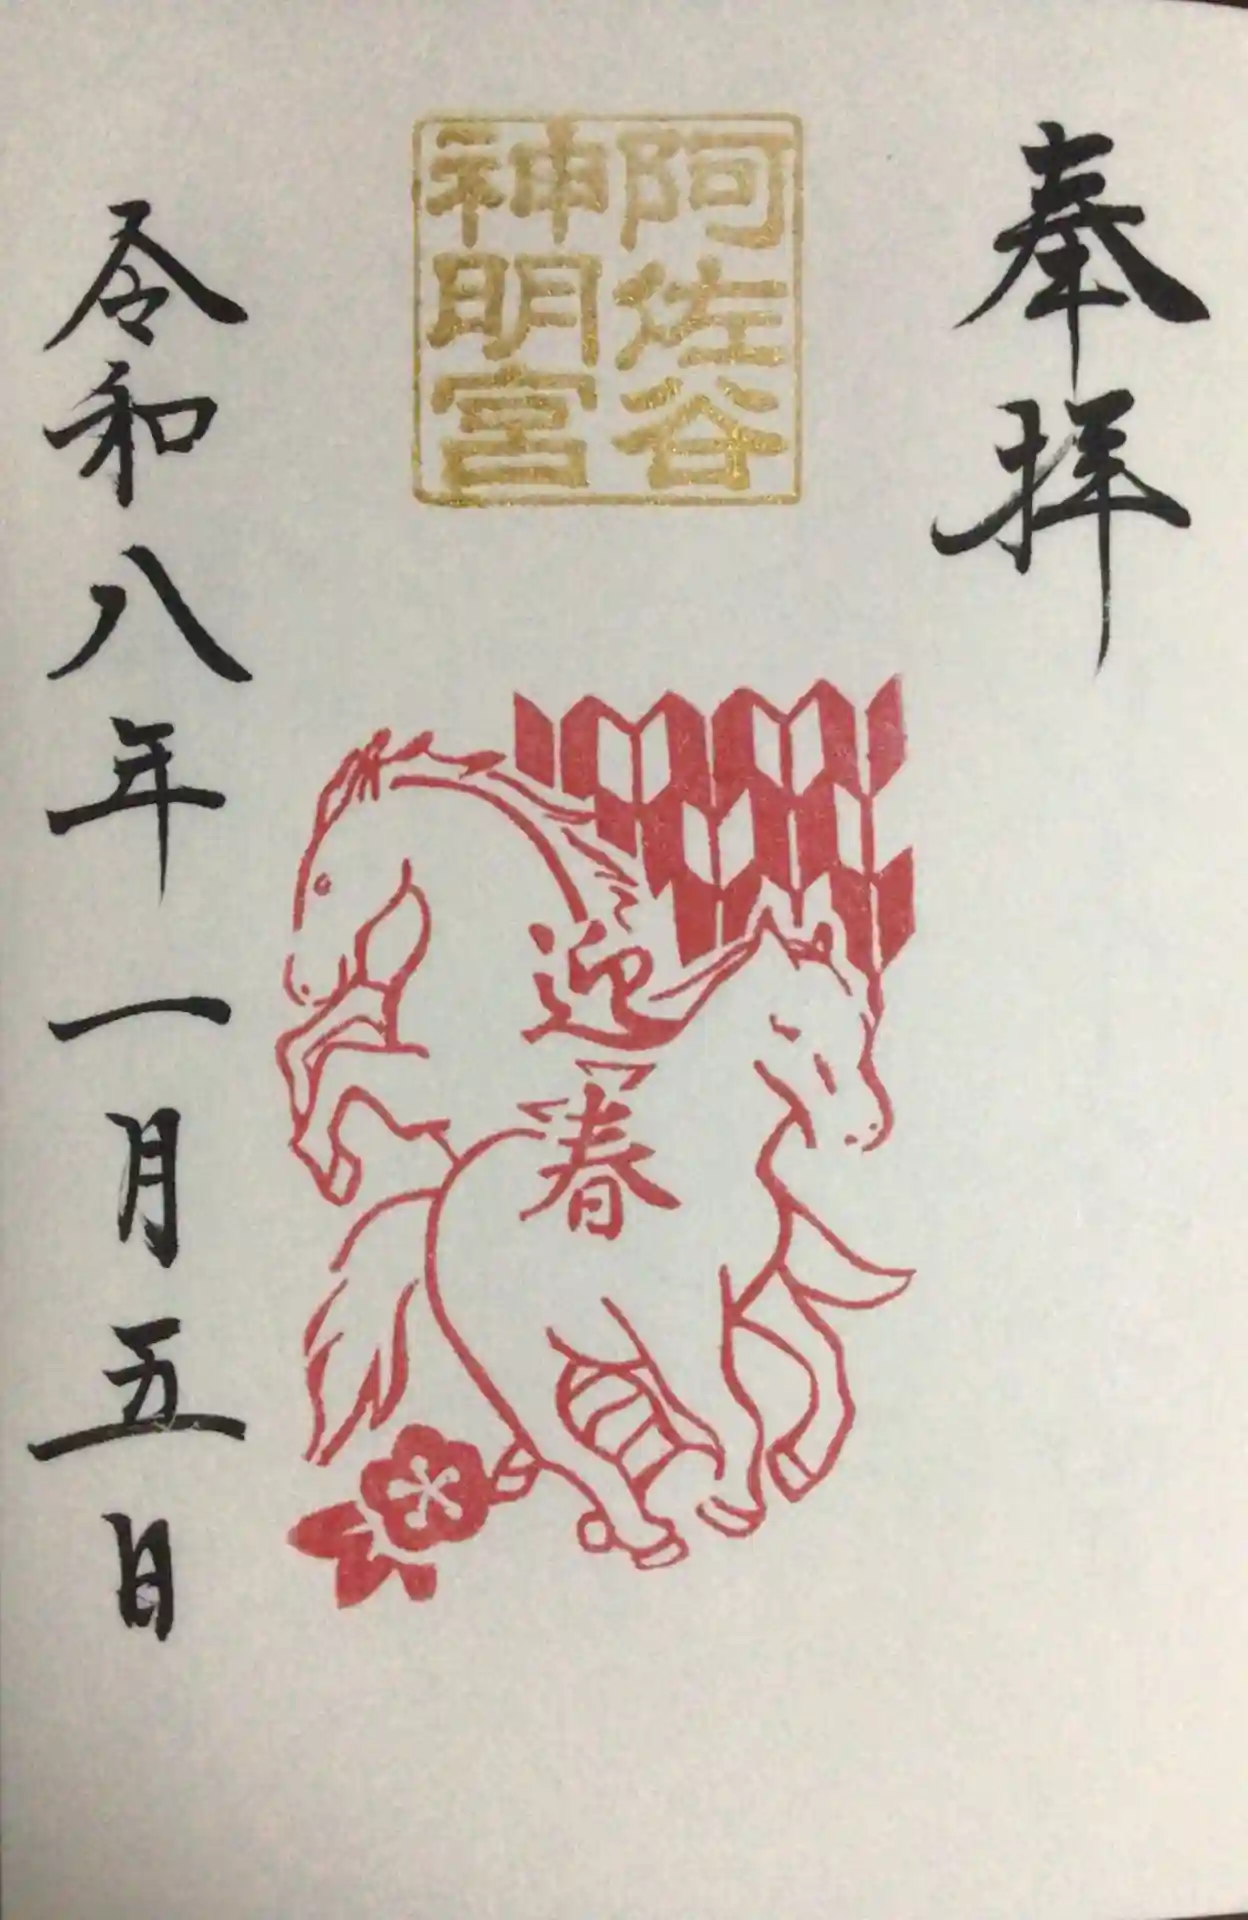 奉拝
阿佐谷
神明宮
迎春
令和八年一月五日